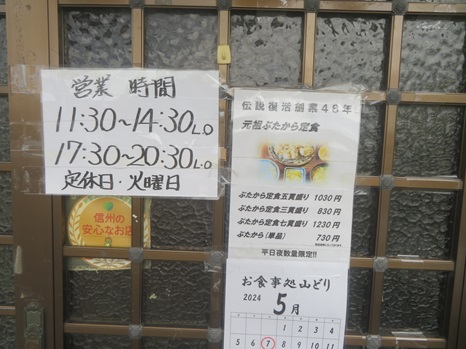 営業 時間
11:30~14:30 L.O
17:30~20:30 L.O
定休日・火曜日
信州の
安心なお店
伝説復活創業48年
元祖ぶたから定食
ぶたから定食五貫盛り 1030円
ぶたから定食三貫盛り 830円
ぶたから定食七貫盛り 1230円
ぶたから(単品) 730円
平日夜数量限定!!
お食事処山どり
2024 5月
1 2 3 4
5 6 7 8 9 10 11